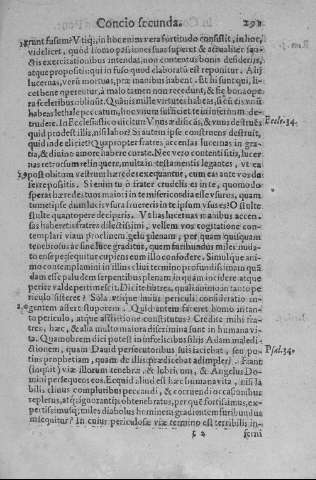 Concio secunda. 291
runt fusum? Vtiq; in hoc enim vera fortitudo consistit, in hoc,
videlicet, quod homo passiones suas superet & actualiter san-
ctis exercitationibus intendat, non contentus bonis desiderijs,
atque propositi: qui in fuso quod elaboratū est reponitur. Alij
lucernas, non mortuas, præ manibus habent. Et hi sunt qui, li-
cet bene operentur, à malo tamen non recedunt, & sic bona ope-
ra sceleribus oblinūt. Quāuis mille virtutes habeas, si cū eis vnū
habeas lethale peccatum, hoc vnum sufficiet te in infernum de-
trudere. In Ecclesiastico dicitur: Vnus ædificās, & vnus destruēs
quid prodest illi, nisi labor? Si autem ipse construens destruit,
quid inde eliciet? Quapropter fratres accensas lucernas in gra-
tia, & diuino amore habere curate. Nec vero contenti sitis, lucer-
nas retrorsum relinquere, multa in testamentis legantes, vt ea
post obitum vestrum hæredes exequantur, cum eas ante vos de-
ferre possitis. Si enim tu ô frater crudelis es in te, quomodo
speras hæredes tuos maiori in te misericordia esse vsuros, quam
tumet ipse dum luci vsura fruereris in te ipsum vsus es? O stulte
stulte quantopere deciperis. Vt has lucernas manibus accen-
sas habere tis fratres dilectissimi, vellem vos cogitatione con-
templari viam procliuem gelu plenam, per quam quisquam
tenebrosus ac sine luce graditur, quem furibundus miles nuda-
to ense persequitur cupiens eum illo confodere. Simulque ani-
mo contemplamini in illius cliui termino profundissimam quā
dam esse paludem serpentibus plenam, in quam incidere atque
perire valde pertimescit. Dicite fratres, qualis animo in tanto pe-
riculo sisteret? Sola vtique huius periculi consideratio in-
gentem afferet stuporem. Quid autem faceret homo in tan-
to periculo, atque afflictione constitutus? Credite mihi fra-
tres, hæc, & alia multo maiora discrimina sunt in humana vi-
ta. Quamobrem dici potest in infœlicibus filijs Adam maledi-
ctionem, quam Dauid persecutoribus suis iaciebat, seu po-
tius prophetiam, quam de illis prædicebat adimpleri. Fiant
(inquit) viæ illorum tenebræ, & lubricum, & Angelus Do-
mini persequens eos. Ecquid aliud est hæc humana vita, nisi la
bilis cliuus compluribus peccandi, & corruendi occasionibus
repletus, atq; ignorantijs obtenebratus, per quē fortissimus, ex-
pertissimusq; miles diabolus hominem gradientem furibundus
insequitur? In cuius periculosæ viæ termino est terribilis in-
feini
Eccle. 34.
Psal. 34.